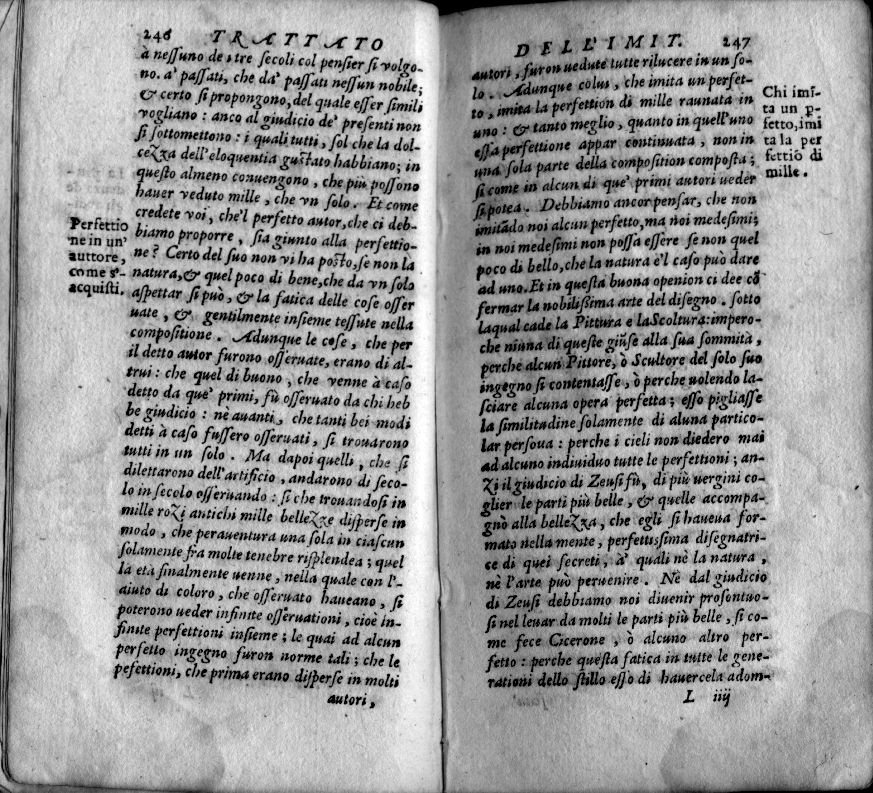 246 TRATTATO
à nessuno de, tre secoli col pensier si volgo-
no. a' passati, che da' passati nessun nobile;
& certo si propongono, del quale esser simili
vogliano: anco al giudicio de' presenti non
si sottomettono: i quali tutti, sol che la dol-
cezza dell'eloquentia gustato habbiano; in
questo almeno conuengono, che più possono
hauer veduto mille, che vn solo. Et come
credete voi, che'l perfetto autor, che ci deb-
biamo proporre, sia giunto alla perfettio-
ne? Certo del suo non vi ha posto, se non là
natura, & quel poco di bene, che da vn solo
aspettar si può, & la fatica delle cose osser
uate, & gentilmente insieme tessute nella
compositione. Adunque le cose, che per
il detto autor furono osseruate, erano di al-
trui: che quel di buono, che venne à caso
detto da que' primi, fù osseruato da chi heb
be giudicio: nè auanti, che tanti bei modi
detti à caso fussero osseruati, si trouarono
tutti in un solo. Ma dapoi quelli, che si
dilettarono dell'artificio, andarono di seco-
lo in secolo osseruando: si che trouandosi in
mille rozi antichi mille bellezze disperse in
modo, che perauentura una sola in ciascun
solamente fra molte tenebre risplendea; quel
la età finalmente uenne, nella quale con l'-
aiuto di coloro, che osseruato haueano, si
poterono ueder infinite osseruationi, cioè in-
finite perfettioni insieme; le quai ad alcun
perfetto ingegno furon norme tali; che le
pefettioni, che prima erano disperse in molti
autori,
Perfettio
ne in un'
auttore,
come s'-
acquisti.
DELL'IMIT. 247
autori, furon uedute tutte rilucere in un so-
lo. Adunque colui, che imita un perfet-
to, imita la perfettion di mille raunata in
uno: & tanto meglio, quanto in quell'uno
essa perfettione appar continuata, non in
una sola parte della composition composta;
si come in alcun di que' primi autori ueder
si potea. Debbiamo ancor pensar, che non
imitādo noi alcun perfetto, ma noi medesimi;
in noi medesimi non possa essere se non quel
poco di bello, che la natura e'l caso può dare
ad uno. Et in questa buona openion ci dee cō
fermar la nobilißima arte del disegno. sotto
laqual cade la Pittura e la Scoltura: impero-
che niuna di queste giūse alla sua sommità,
perche alcun Pittore, ò Scultore del solo suo
ingegno si contentasse, ò perche uolendo la-
sciare alcuna opera perfetta; esso pigliasse
la similitadine solamente di aluna partico-
lar persoua: perche i cieli non diedero mai
ad alcuno indiuiduo tutte le perfettioni; an-
zi il giudicio di Zeusi fù, di più uergini co-
glier le parti più belle, & quelle accompa-
gnò alla bellezza, che egli si haueua for-
mato nella mente, perfettissima disegnatri-
ce di quei secreti, à' quali nè la natura,
nè l'arte può peruenire. Nè dal giudicio
di Zeusi debbiamo noi diuenir prosontuo-
si nel leuar da molti le parti più belle, si co-
me fece Cicerone, ò alcuno altro per-
fetto: perche questa fatica in tutte le gene-
rationi dello stillo esso di hauercela adom-
L iiij
Chi imi-
ta un p-
fetto, imi
ta la per
fettiō di
mille.